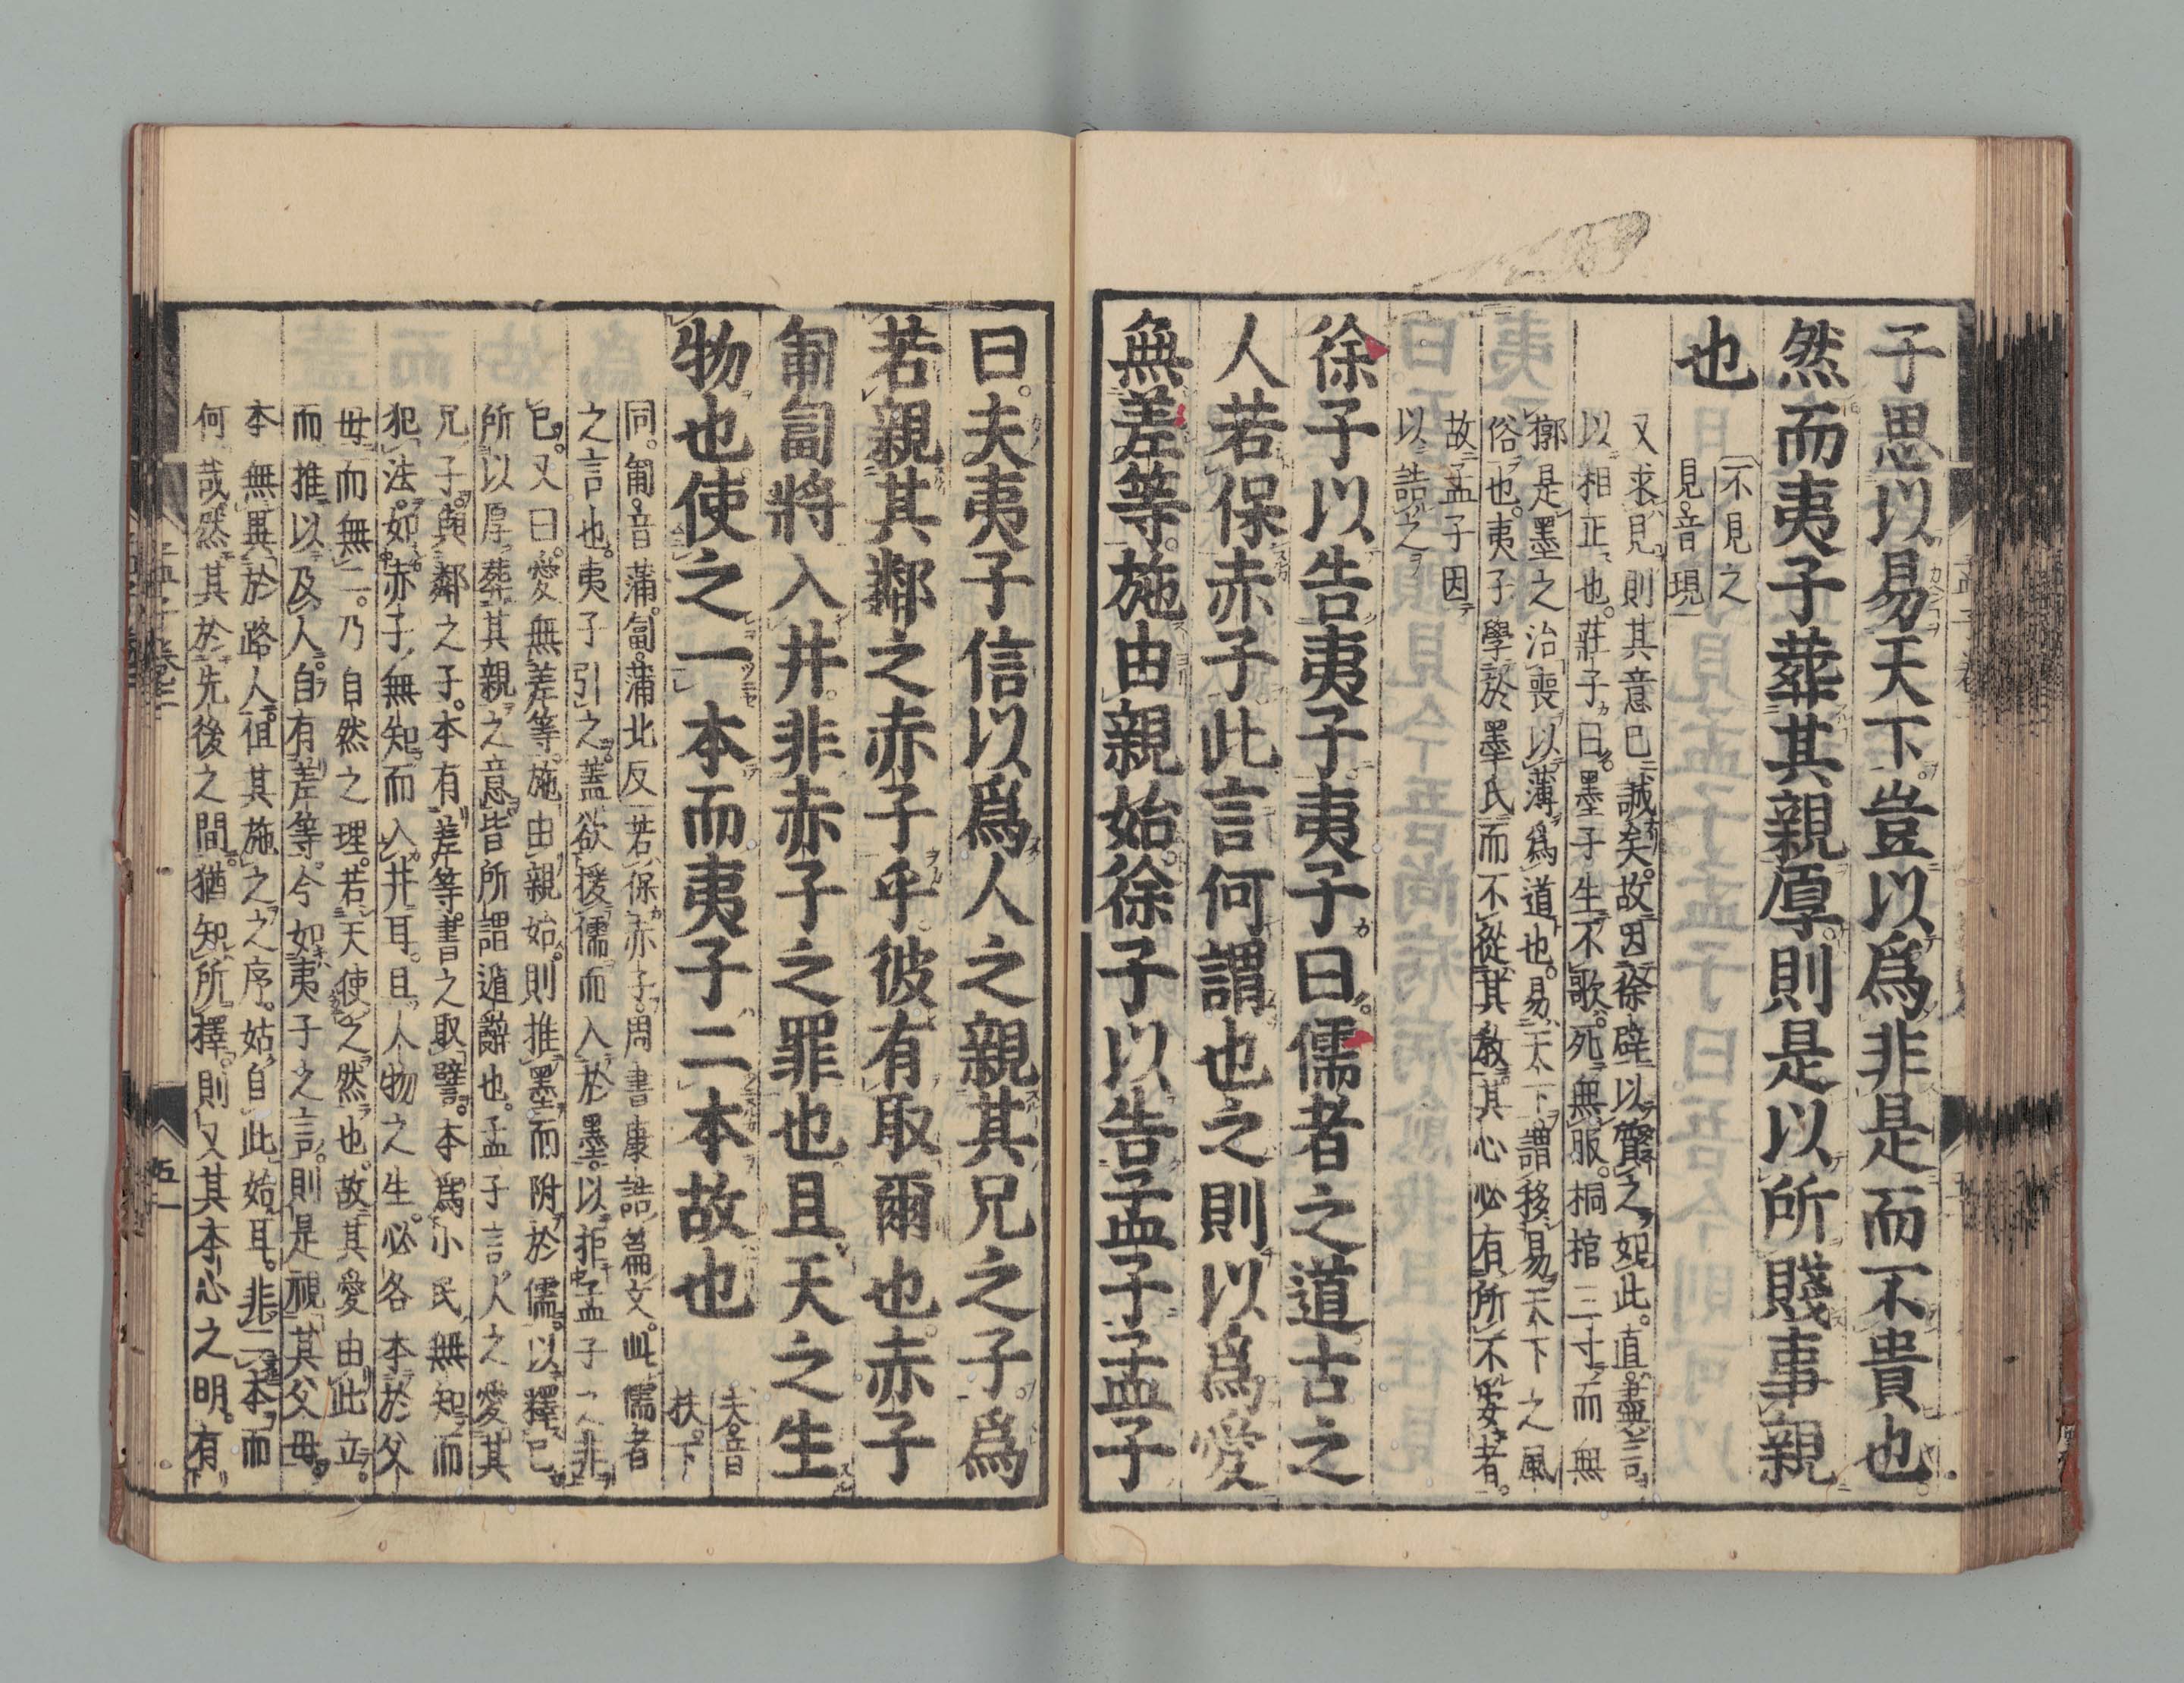 子思以易天下。豈以爲非是而不貴也。
然而夷子葬其親厚。則是以所賤事親
也
不見之
見。音現
又求見。則其意已誠矣。故因徐辟以質之。如此。直。盡言
以相正也。莊子曰。墨子生不歌。死無服。桐棺三寸。而無
槨。是墨之治喪。以薄爲道也。易天下。謂移易天下之風
俗也。夷子學於墨氏。而不從其教。其心必有所不安者。
故孟子因
以詰之
徐子以告夷子。夷子曰。儒者之道古之
人若保赤子。此言何謂也之則以爲愛
無差等。施由親始。徐子以告孟子孟子
曰。夫夷子信以爲人之親其兄之子。爲
若親其鄰之赤子乎。彼有取爾也。赤子
匍匐將入井。非赤子之罪也且天之生
物也。使之一本而夷子二本故也
夫。音
扶。下
同。匍。音蒲。匐。蒲北反
若保赤子。周書康誥篇文。此儒者
之言也。夷子引之。蓋欲援儒而入於墨。以拒孟子之非
已。又曰。愛無差等。施由親始。則推墨而附於儒。以釋己
所以厚葬其親之意。皆所謂遁辭也。孟子言。人之愛其
兄子。與鄰之子。本有差等。書之取譬。本爲小民無知。而
犯法。如赤子無知而入井耳。且人物之生。必各本於父
母。而無二。乃自然之理。若天使之然也。故其愛由此立。
而推以及人。自有差等。今如夷子之言。則是視其父母。
本無異於路人。但其施之之序。姑自此始耳。非二本而
何哉。然其於先後之間。猶知所擇。則又其本心之明。有
孟子卷三
五十一